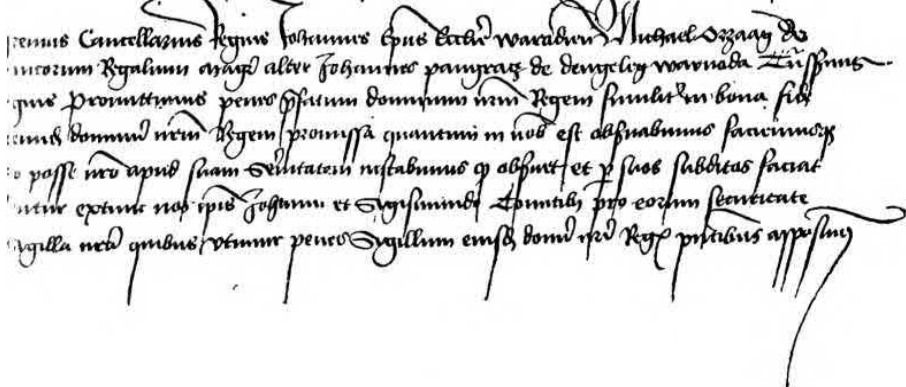 Cancellarius Regius Johannes Epus Ecclie waradien Michael Orzaag de
Regalium magr alter Johannes pangratz de dengeleg wayuoda
promittimus penes pfatum dominum nrm Regem similit in bona fide
dominu nrm Regem promissa quantum in nob est obsuabimus faciemusq
posse nro apud suam Serenitatem instabimus q obsuet et p suos subditos faciat
extunc nos ipis Johanni et Sigismundo Comitib pro eorum securitate
Sigilla nra quibus vtimur penes Sigillum eiusd domi nri Reg pntibus apposuim